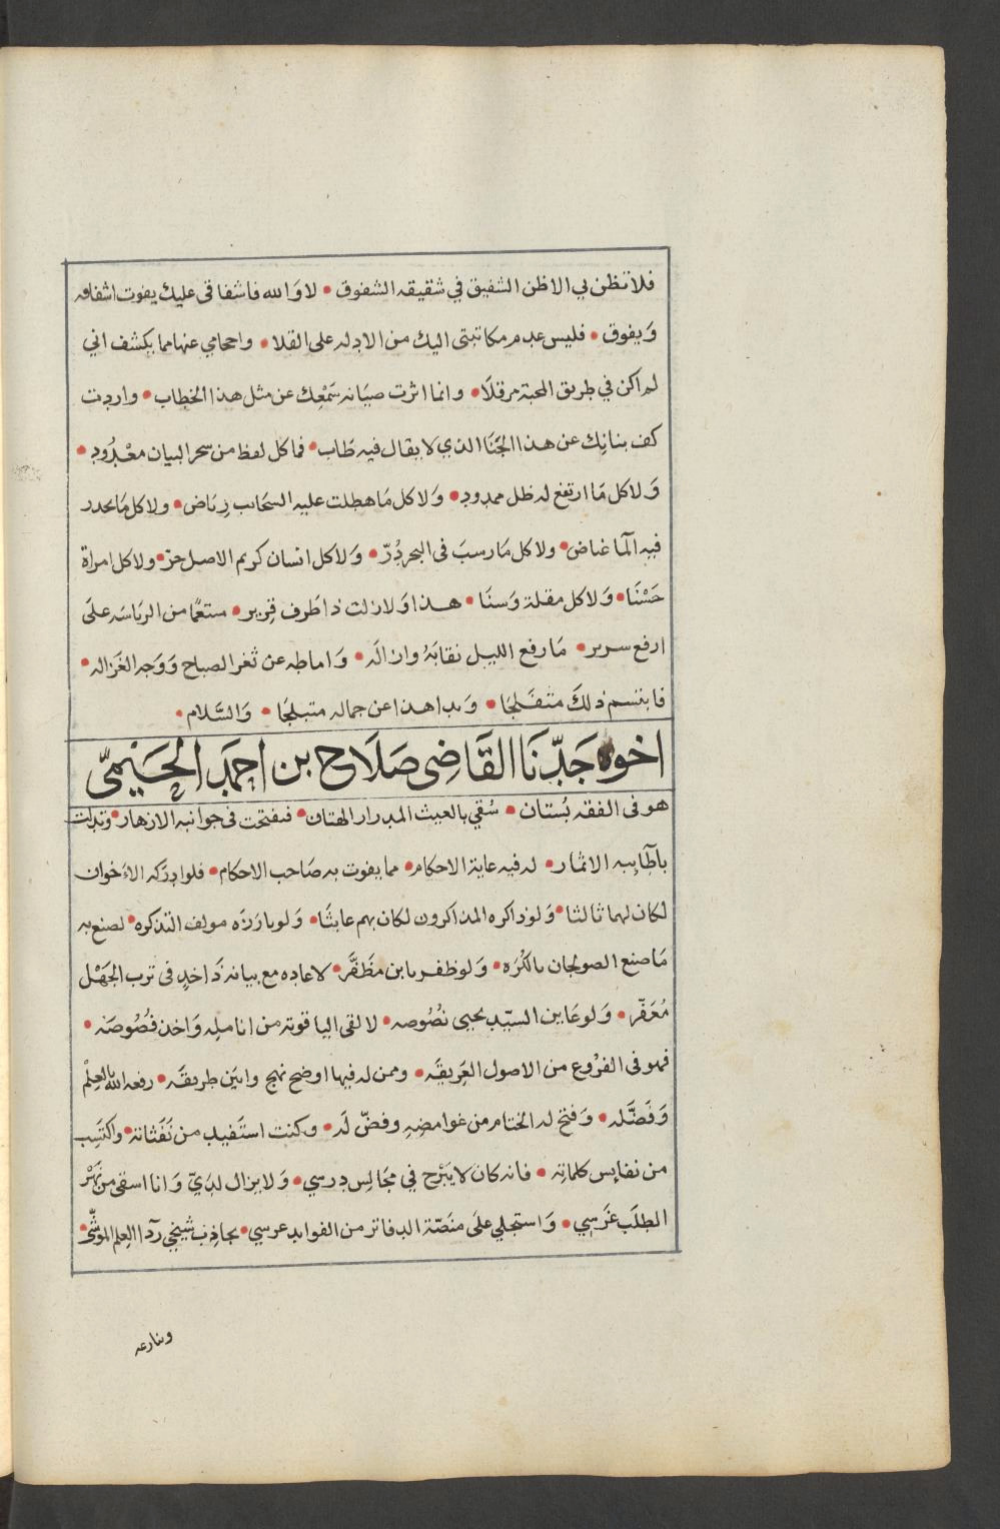 فلا تظن بي الا ظن الشفيق في شقيقه الشفوق • لا والله فاشفاقى عليك يفوت اشفاقه
وَيفوق • فليس عدم مكاتبتى اليك من الادله على القلا • واحجامي عنها مما يكشف اني
لم اكن في طريق المحبة مرقلَا • وانما اثرت صيَانه سَمْعِك عن مثل هذا الخطاب • واردت
كف بنانِك عن هذا الجَنَا الذي لا يقال فيه طَاب • فما كل لفظ من سحر البيان معْدُود •
وَلا كل مَا ارتفع له ظل ممدود • وَلا كل مَا هطلت عليه السحَائب رِيَاض • ولا كل مَا تحدر
فيه المَا غياض • ولا كل مَا رسبَ فى البحر دُرّ • وَلا كل انسان كريم الاصل حرّ • ولا كل امراة
حَسْنَا • وَلا كل مقلة وَسنَا • هذا وَلا زلت ذا طَرف قرير • متعًا من الريَاسَه علىَ
ارفع سرير • مَا رفع الليل نقابَهُ وازالَه • وَاماطه عن ثغر الصباح وَوَجه الغَزاله •
فابتسم ذلكَ متفَلجَا • وَبدا هذا عن جماله متبلجًا • وَالسَّلام •
اخوه جَدّنَا القَاضِى صَلَاح بن احمَد الحَيْمِيّ
هو فى الفقه بُستان • سُقي بالغيث المدرار الهتان • فتفتحت فى جوانبه الازهار • وتدلت
باَطَايِبه الاثمار • له فيه غاية الاحكام • مما يفوت به صَاحب الاحكام • فلو ادرَكه الاَخوان
لكان لهما ثالثا • وَلو ذاكره المذاكرون لكان بهم عابثًا • وَلو بارَزَه مولف التذكره • لصنع به
مَا صنع الصولجان بالكُرَه • وَلو ظفر بابن مظَفَّر • لاعاده مع بيانه ذَا خدٍ فى ترب الجَهْل
مُعَفّر • وَلو عَاين السيّد يحيى نصُوصه • لالقى الياقوتة من انامله وَاخذ فصُوصَه •
فهو فى الفرُوع من الاصول العَرِيقَه • وممن له فيها اوضح نهج وابيَن طريقَه • رفعه الله بالعِلْم
وَفَضَّله • وَفتح له الختام من غوامضه وفضّ لَه • وكنت استَفيد من نَفَثاته • واكتَسِب
من نفايس كلماته • فانه كان لا يَبْرح في مجَالِس درسي • وَلا يزال لديّ وَانا اسقى من نَهْر
الطلَب غَرسِي • وَاستجلي علىَ منَصّة الدفاتر من الفوايد عرسي • يجاذب شيخي ردَا العِلم الموَشّى •
وينازعه